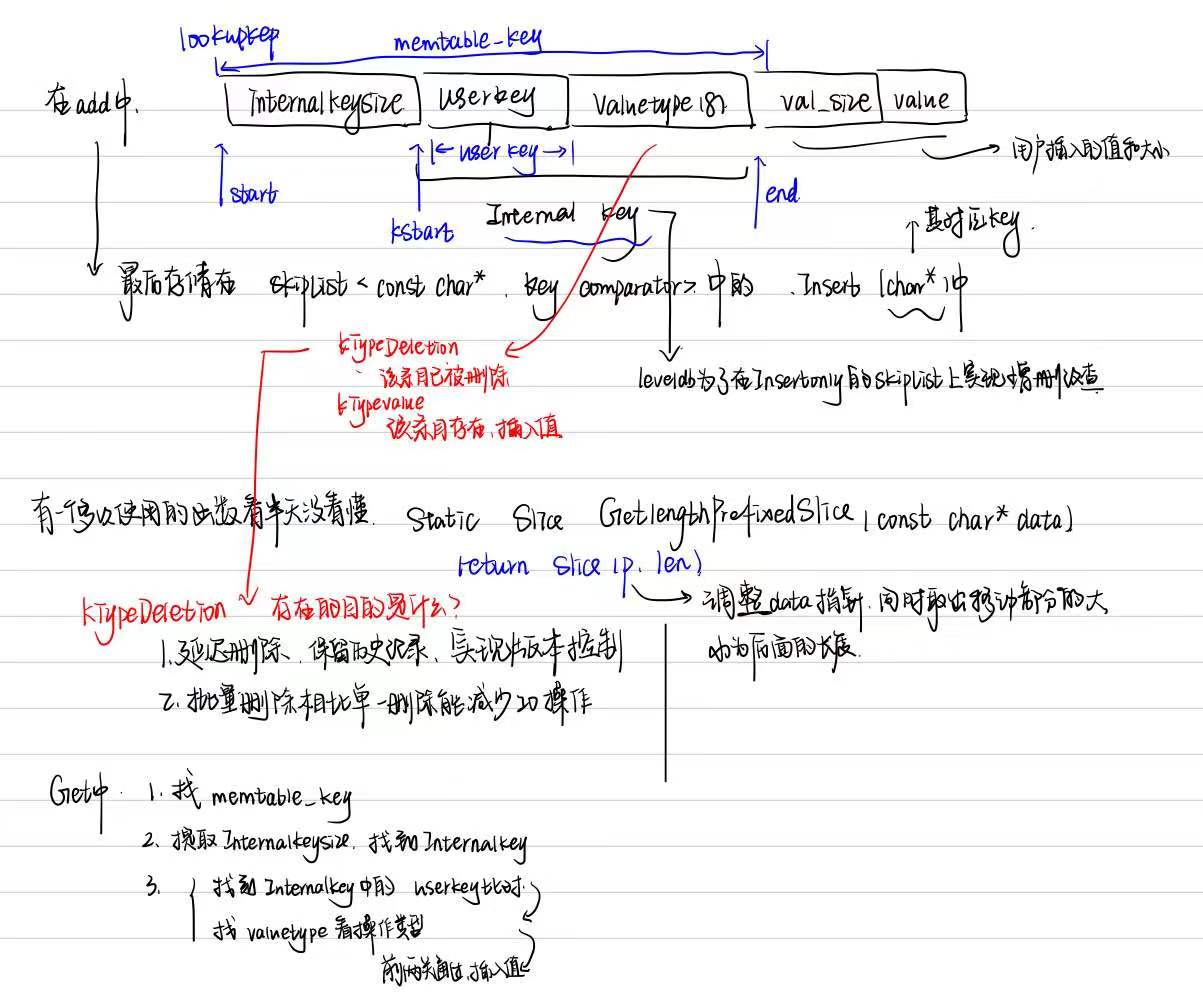 lookupkey
memtable_key
在add中.
Internalkeysize
userkey
Valuetype (8)
val_size
value
|← userkey →|
用户插入的值和大小
start
kstart
end
Internal key
其对应key.
最后存储在 skiplist < const char* , key comparator > 中的 . Insert (char*)中
kTypeDeletion
该条目已被删除
kTypevalue
该条目存在、插入值
leveldb为了在Insertonly的skiplist上实现增删改查
有一个多次使用的函数看半天没看懂. Static Slice GetlengthPrefixedSlice (const char* data)
return Slice (p, len)
调整data指针,同时取出移动部分的大
小为后面的长度.
kTypeDeletion 存在的目的是什么?
1.延迟删除、保留历史记录、实现版本控制
2、批量删除相比单一删除能减少IO操作
Get中. 1、找 memtable_key
2、提取Internalkeysize, 找到Internalkey
3、 找到Internalkey中的 userkey比对.
找 valuetype 看操作类型
前两关通过,插入值